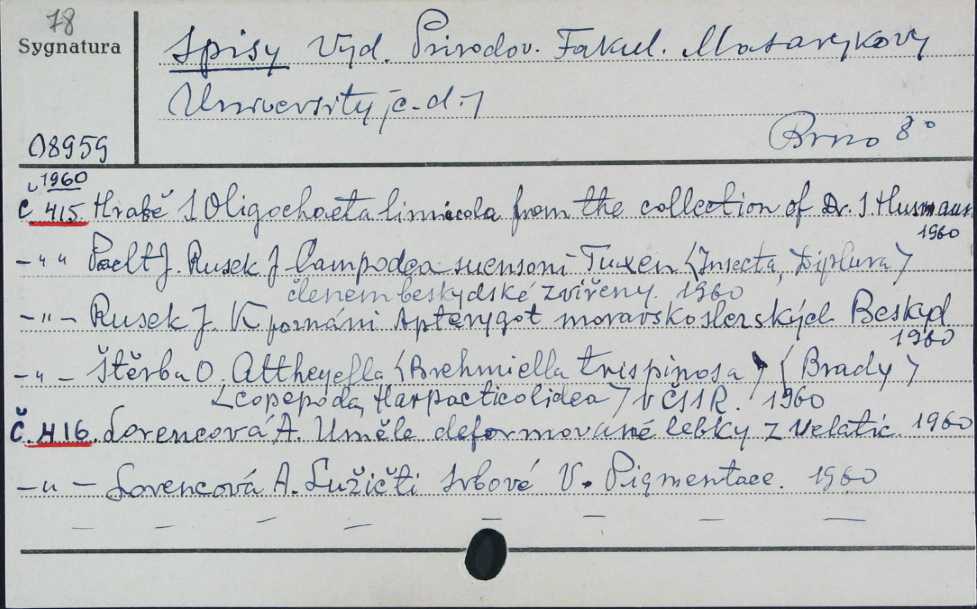 78
Sygnatura
08959
Spisy Vyd. Přírodov. Fakul. Masarykovy
University /c.d./
Brno 8°
1960
č 415. Hrabě S Oligochaeta limicola from the collection of Dr. S. Husmann
1960
-"- Paclt J. Rusek J. Campodea suensoni Tuxen (Insecta, Diplura)
členem beskydské zvířeny. 1960
-"- Rusek J. K poznáni Apterygot moravskoslezských Beskyd
1960
-"- Štěrba O. Attheyella (Brehmiella trispinosa) (Brady)
(copepoda, Harpacticoidea) v ČSSR. 1960
Č. 416. Lorencová A. Uměle deformované lebky z Velatic 1960
-"- Lorencová A. Lužičti Srbové V. Pigmentace. 1960